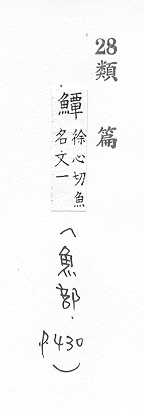 28 類篇
鱏 徐心切魚
名文一
(魚部. P430)